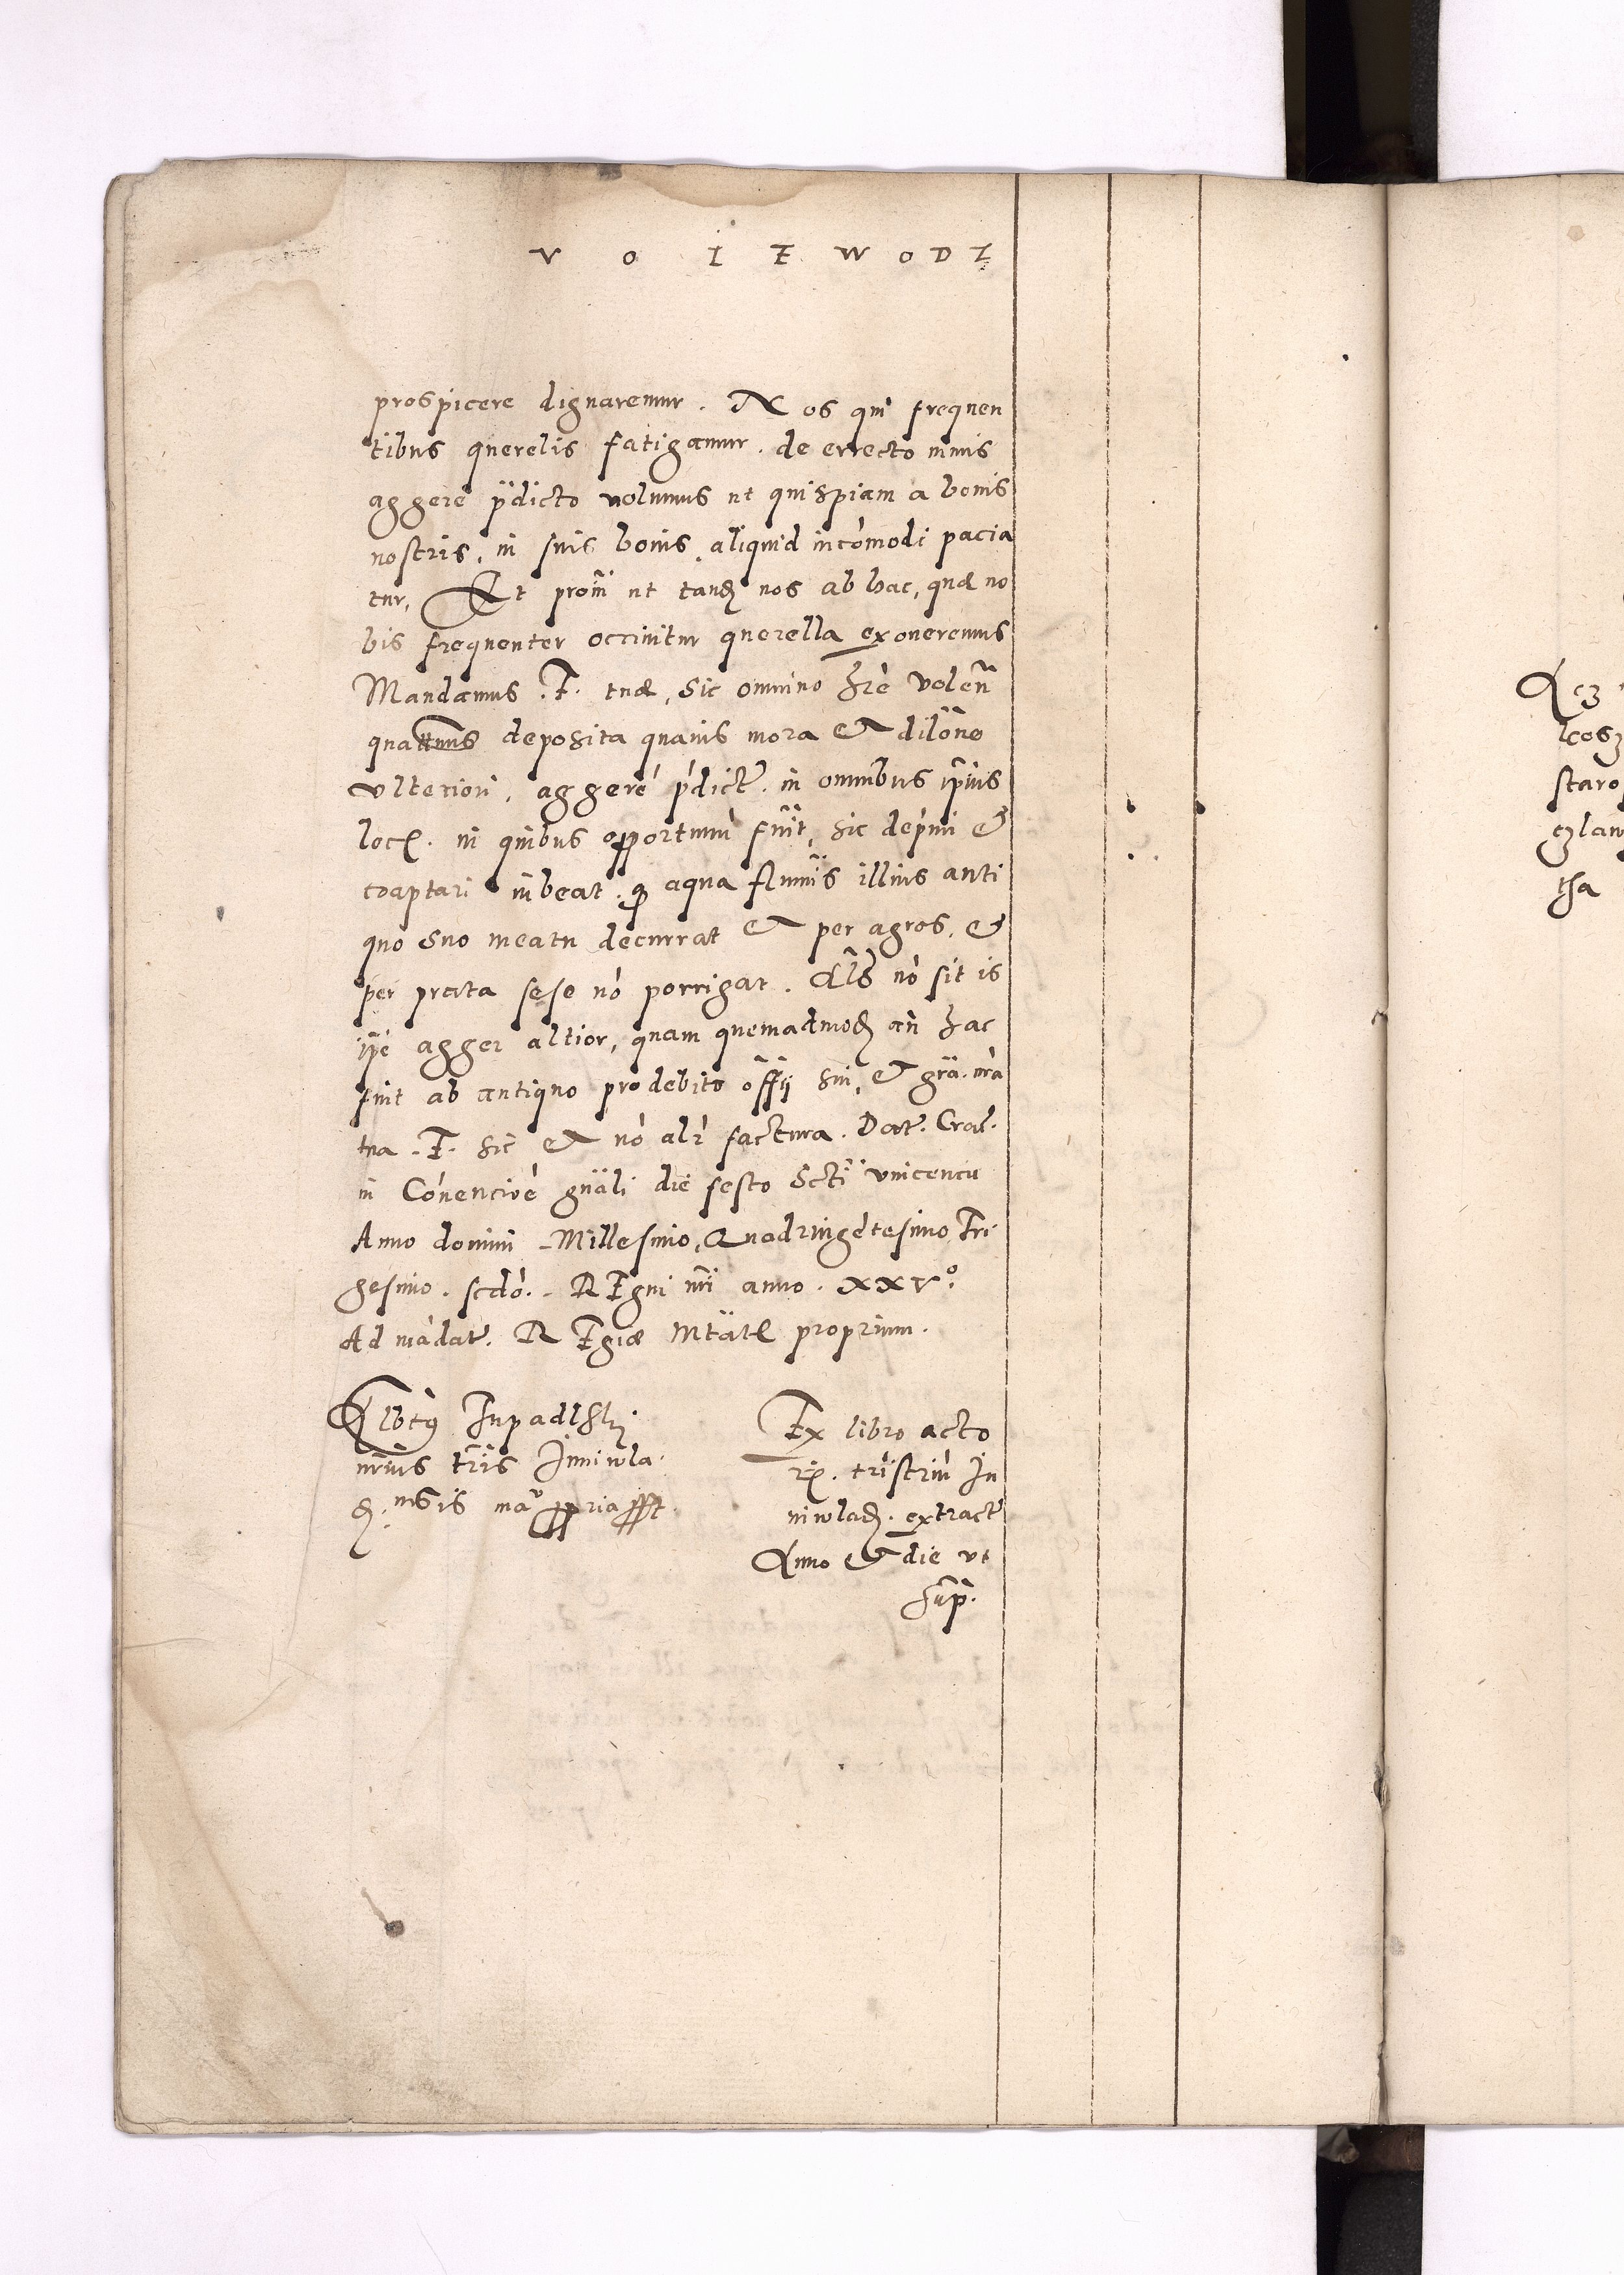 V O I E W O D Z
prospicere dignaremur. Nos qui frequen
tibus querelis fatigamur. de errecto nimis
aggere p̃dicto nolumus ut quispiam a bonis
nostris, in suis bonis, aliquid incõmodi pacia
tur, Et proin̄ ut tandꝫ nos ab hac, quæ no
bis frequenter occinitur querella exoneremus
Mandamus .F. tuæ, Sic omnino h̃re volen̄
deposita quauis mora et dilõne
vlteriori, aggerẽ p̃dict̃. in omnibus ip̃ius
locꝭ. in quibus opportunũ fuĩt, sic deprimi et
coaptari iubeat. ꝙ aqua fluminis illius anti
quo suo meatu decurrat et per agros, et
per prata sese nõ porrigat. Al̃s nõ sit is
ip̃e agger altior, quam quemadmodꝫ an̄ hac
fuit ab antiquo pro debito offĩj sui, et gr̃a. nr̃a
tua .F. sic et nõ alr̃ factura. Dat̃. Crac̃.
in Cõuencioẽ gnãli die festo Scti vincencii
Anno domini Millesimo, Quadringẽtesimo Tri
gesimo. scdõ. REgni nr̃i anno. XXVº.
Ad mãdat̃. REgiæ Mtãtꝭ proprium.
Albt̃9 Tupadlsky
nr̃ius tr̃ris Juniwla.
dꝫ. nsis mãu ꝓpria ss̃t
Ex libro acto
rꝝ. tr̃istriũ Ju
niwladꝫ. extract̃
Anno et die vt
sup̃.
Acz
kosz
staro
czlaw
tha